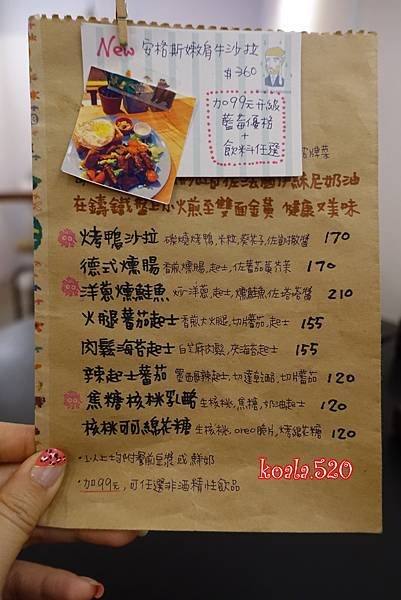 New 安格斯嫩肩牛沙拉
$360
加99元升級
藍莓優格
+
飲料任選
招牌菜
佐法國 絲尼奶油
在鑄鐵盤上小火煎至雙面金黃 健康又美味
烤鴨沙拉 碳燒烤鴨,卡粒,葵花子,佐凱撒醬 170
德式燻腸 香煎燻腸,起士,佐蕃茄薯芥茉 170
洋蔥燻鮭魚 炒洋蔥,起士,燻鮭魚,佐塔塔醬 210
火腿蕃茄起士 香煎大火腿,切片蕃茄,起士 155
肉鬆海苔起士 白芝麻肉鬆,夾海苔起士 155
辣起士蕃茄 墨西哥辣起士,切達乳酪,切片蕃茄 120
焦糖核桃乳酪 生核桃,焦糖,奶油起士 120
核桃可可綿花糖 生核桃,oreo脆片,烤綿花糖 120
·以上均附餐前豆漿或鮮奶
·加99元,可任選非酒精性飲品
koala.520